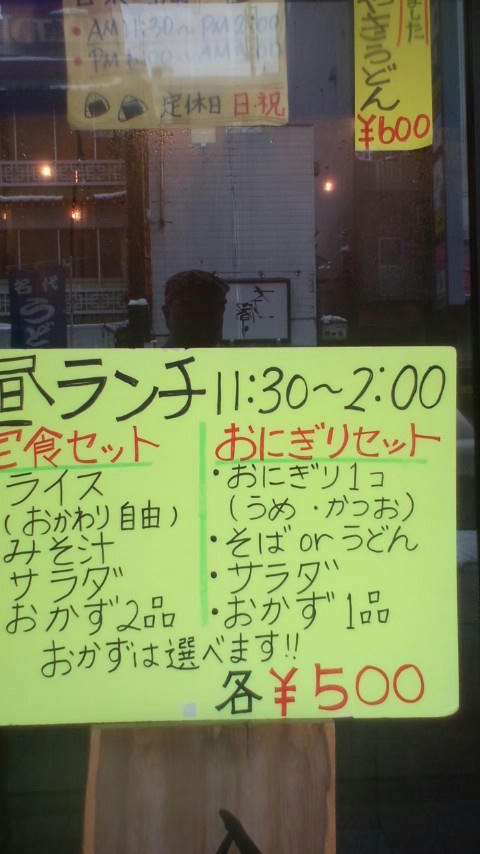 ・AM 11:30～PM 2:00
定休日 日・祝
ました
やきうどん
¥600
名代
うど
昼ランチ 11:30～2:00
定食セット
ライス
(おかわり自由)
みそ汁
サラダ
おかず2品
おにぎりセット
・おにぎり1コ
(うめ・かつお)
・そば or うどん
・サラダ
・おかず1品
おかずは選べます!!
各¥500